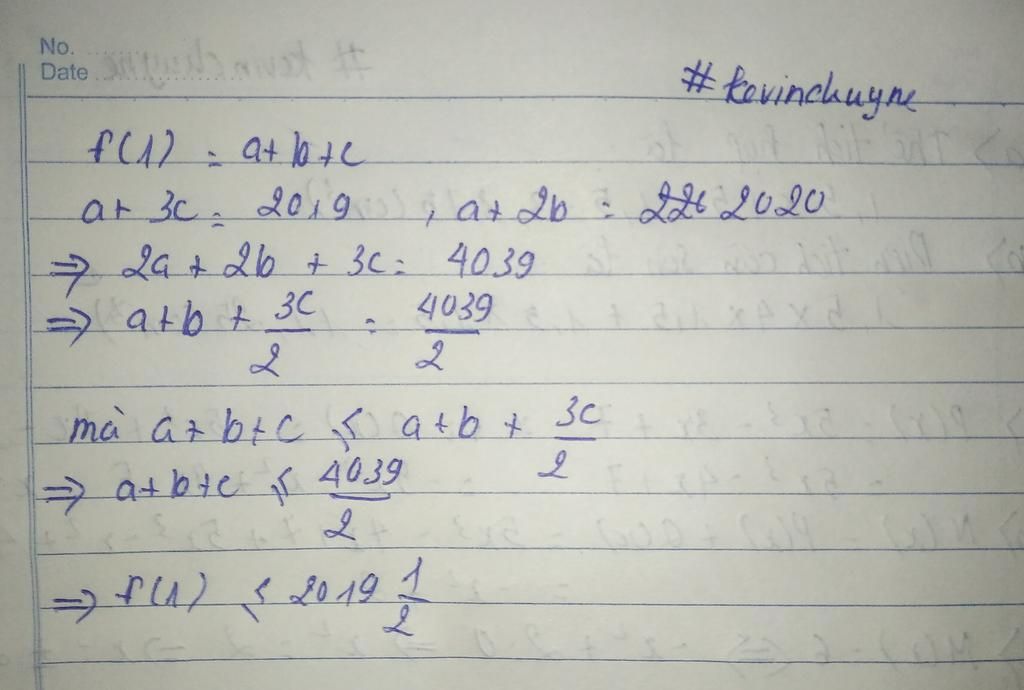 No.
Date
#kevinchuyne
f(1) = a+b+c
a+ 3c = 2019 , a+ 2b = 2020
⇒ 2a + 2b + 3c = 4039
⇒ a+b + 3c/2 = 4039/2
mà a+b+c ≤ a+b + 3c/2
⇒ a+b+c ≤ 4039/2
⇒ f(1) ≤ 2019 1/2